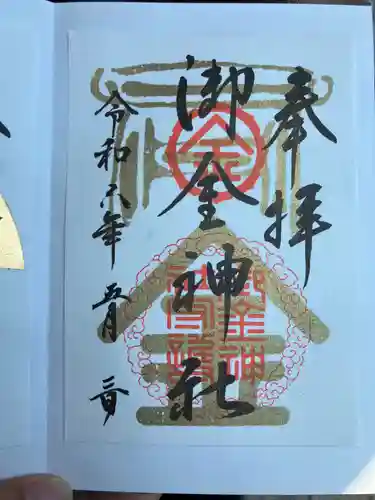 奉拝
御金神社
令和六年 五月 三日
金
御金神
社印